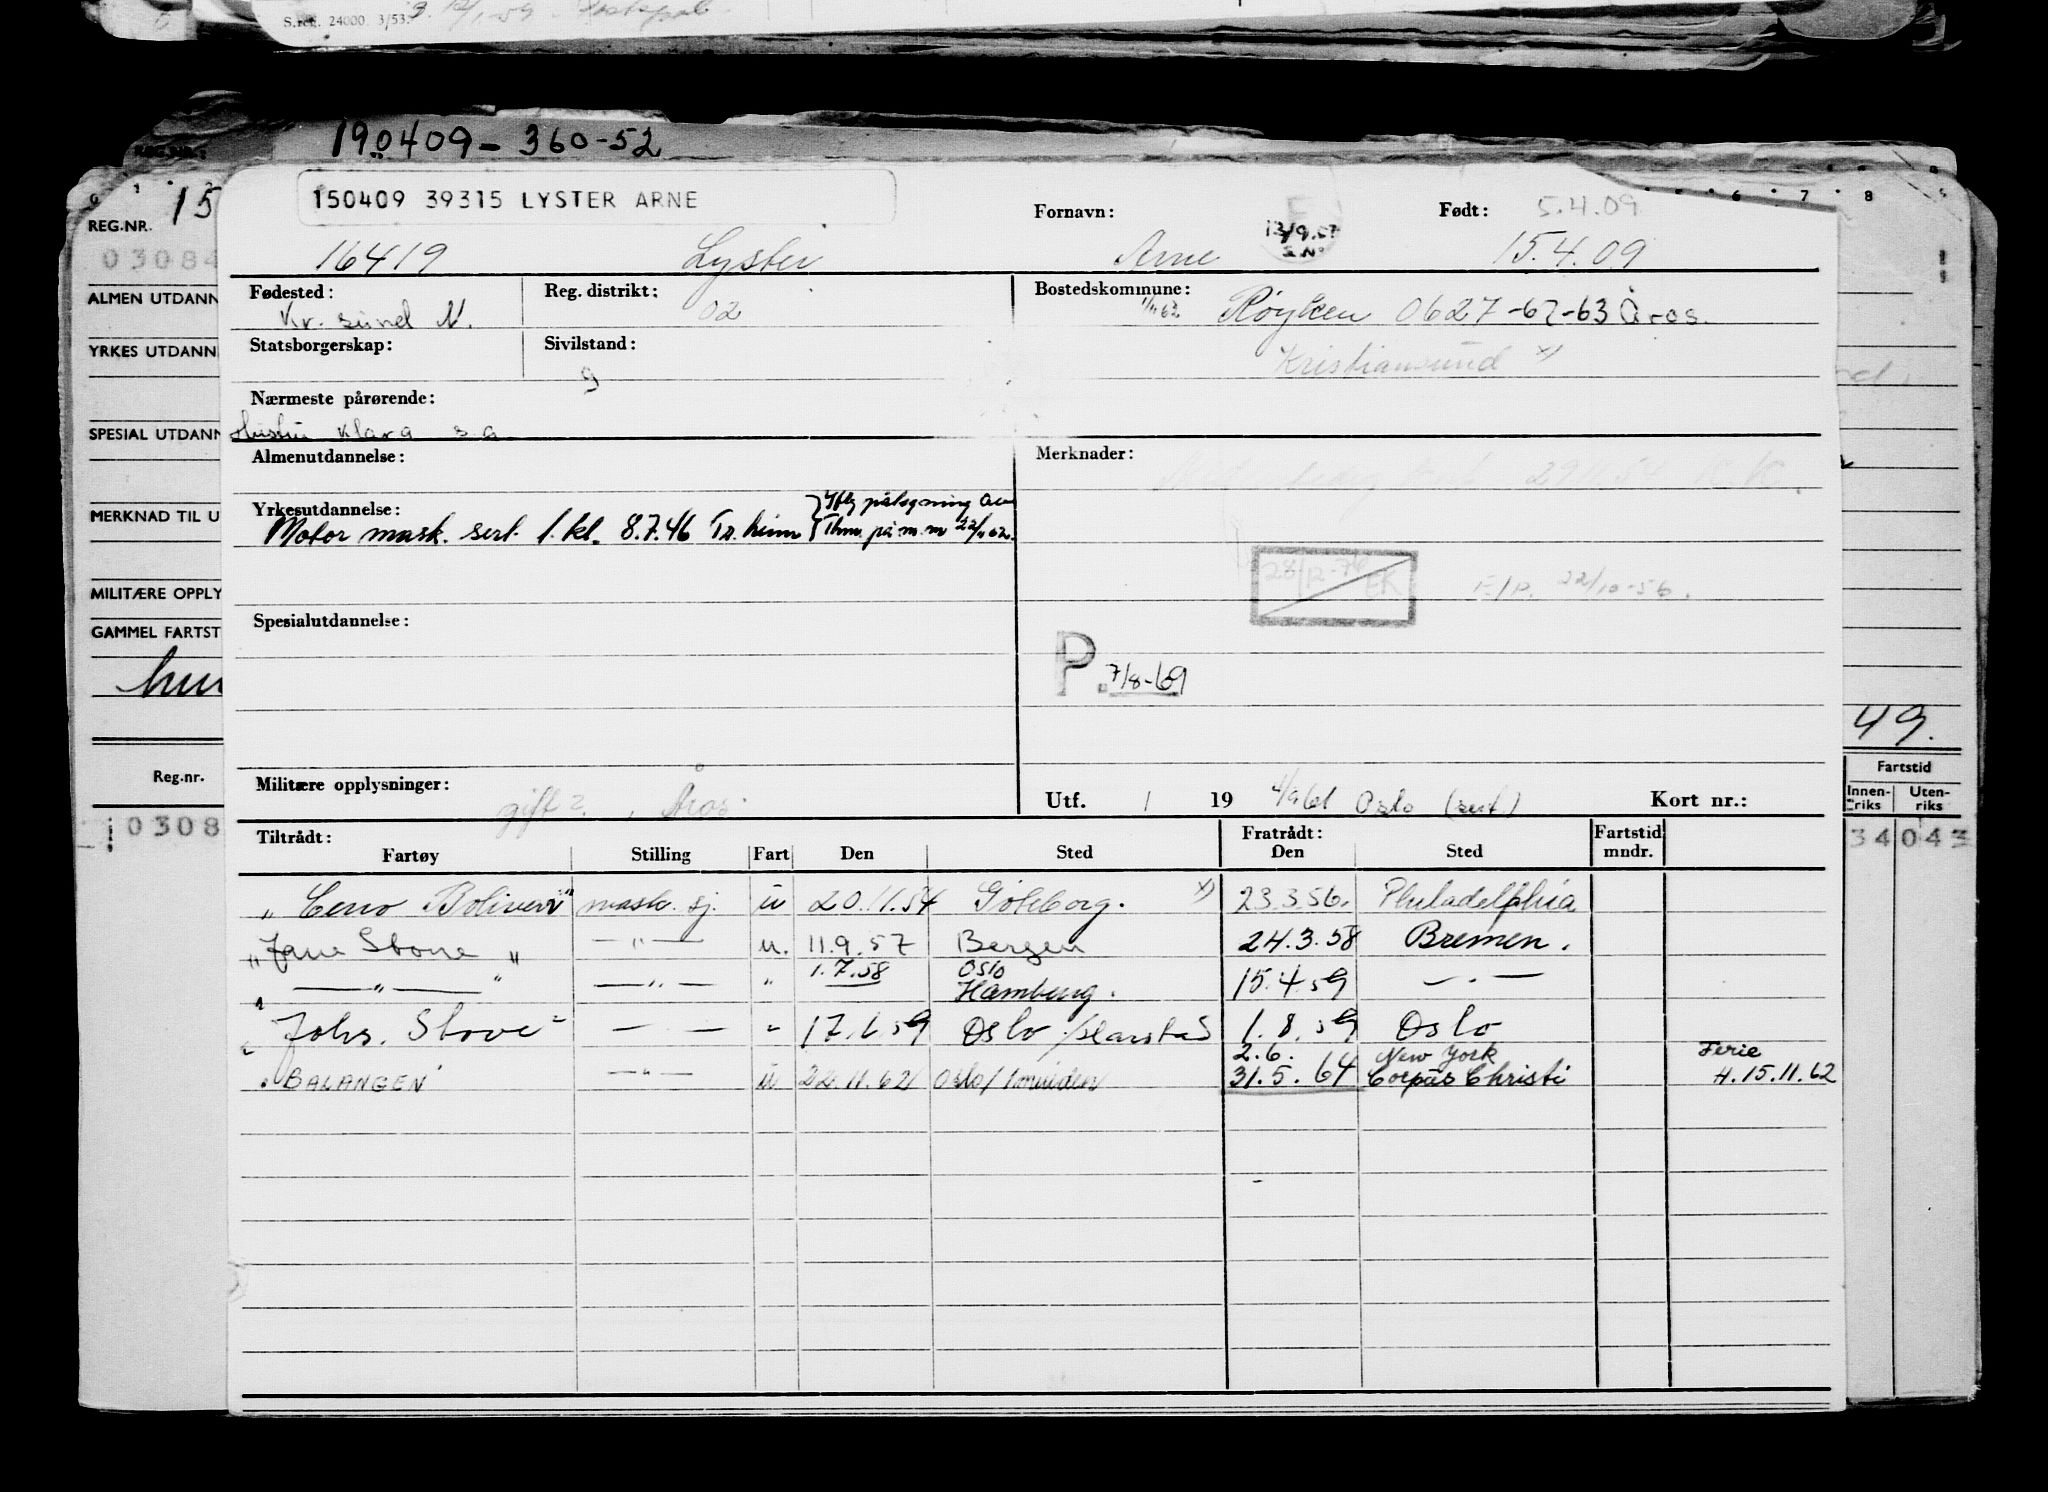 S.reg. 24000. 3/53.
190409 - 360-52
150409 39315 LYSTER ARNE
Fornavn: Født: 5.4.09
REG.NR. 15
13/9.57
16419 Lyster Arne 15.4.09
0308
Fødested: Reg. distrikt: Bostedskommune:
Kr. sund N. 02 Røyken 0627-62-63 Åros.
ALMEN UTDANN
Statsborgerskap: Sivilstand:
g Kristiansund x)
YRKES UTDANN
Nærmeste pårørende:
Hustru Klara s a
SPESIAL UTDANN
Almenutdannelse: Merknader:
Yrkesutdannelse:
Motor mask. sert. 1.kl. 8.7.46 Tr.heim
MERKNAD TIL U
28/12-76 ER
E/P. 22/10-56.
MILITÆRE OPPLY
Spesialutdannelse:
GAMMEL FARTST
P. 7/8-69
49.
Reg.nr. Fartstid
Militære opplysninger: gift 2. Åros.
Utf. 1 19 4/9 61 Oslo (sert.) Kort nr.:
Innen-riks Uten-riks
0308 34 043
Tiltrådt: Fratrådt: Fartstid
Fartøy Stilling Fart Den Sted Den Sted mndr.
mask. sj. u 20.11.54 Göteborg. x) 23.3.56. Philadelphia
„ Jane Stove „ —„— u. 11.9.57 Bergen 24.3.58 Bremen.
—„— —„— „ 1.7.58 Oslo Hamburg. 15.4.59 —.—
„ Johs. Stove " — — „ 17.6.59 Oslo /Harstad 1.8.59 Oslo
2.6. New York Ferie
"BALANGEN" —„— u 22.11.62 Oslo/Imuiden 31.5.64 Corpus Christi H.15.11.62